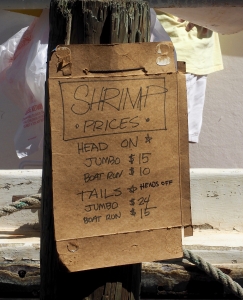 SHRIMP
PRICES
HEAD ON
JUMBO $15
BOAT RUN $10
TAILS HEADS OFF
JUMBO $24
BOAT RUN $15